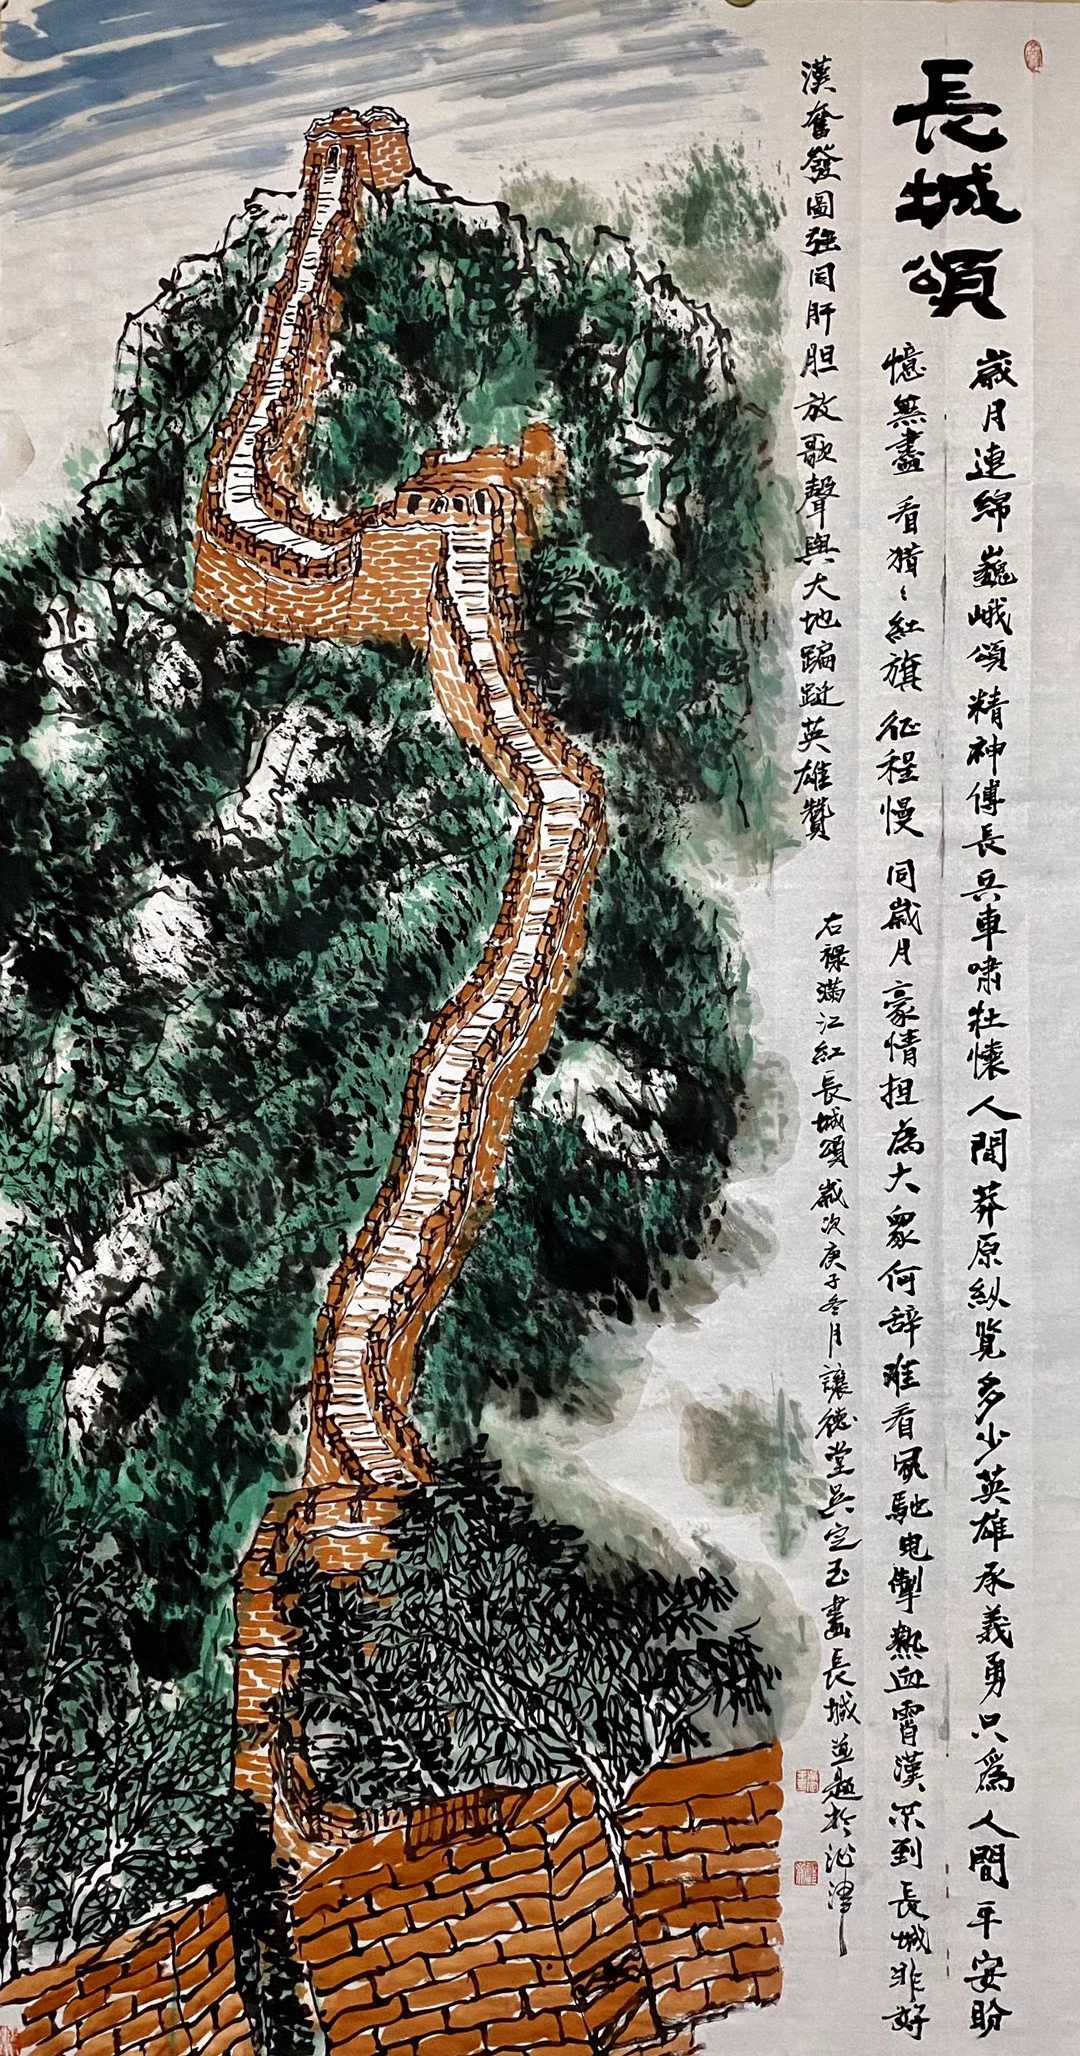 長城頌
歲月連綿巍峨頌精神傳長兵車嘯壯懷人間莽原縱覽多少英雄承義勇只為人間平安盼
憶無盡看獵〻紅旗征程慢同歲月豪情担為大眾何辞难看風馳电掣熱血霄漢不到長城非好
漢奮發圖強同肝胆放歌聲與大地蹁跹英雄贊
右禄滿江紅長城頌歲次庚子冬月讓德堂吳定玉畫長城並題於沘津